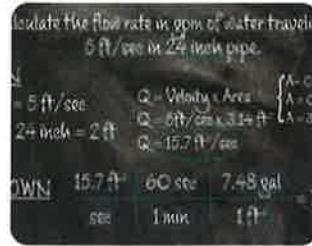 lculate the flow rate in gpm of water traveli
5 ft/sec in 24 inch pipe.
= 5 ft/sec
24 inch = 2 ft
Q = Velocity x Area
Q = 5ft/sec x 3.14 ft²
Q = 15.7 ft³/sec
A =
A =
A =
OWN
15.7 ft³ 60 sec 7.48 gal
sec 1 min 1 ft³
=